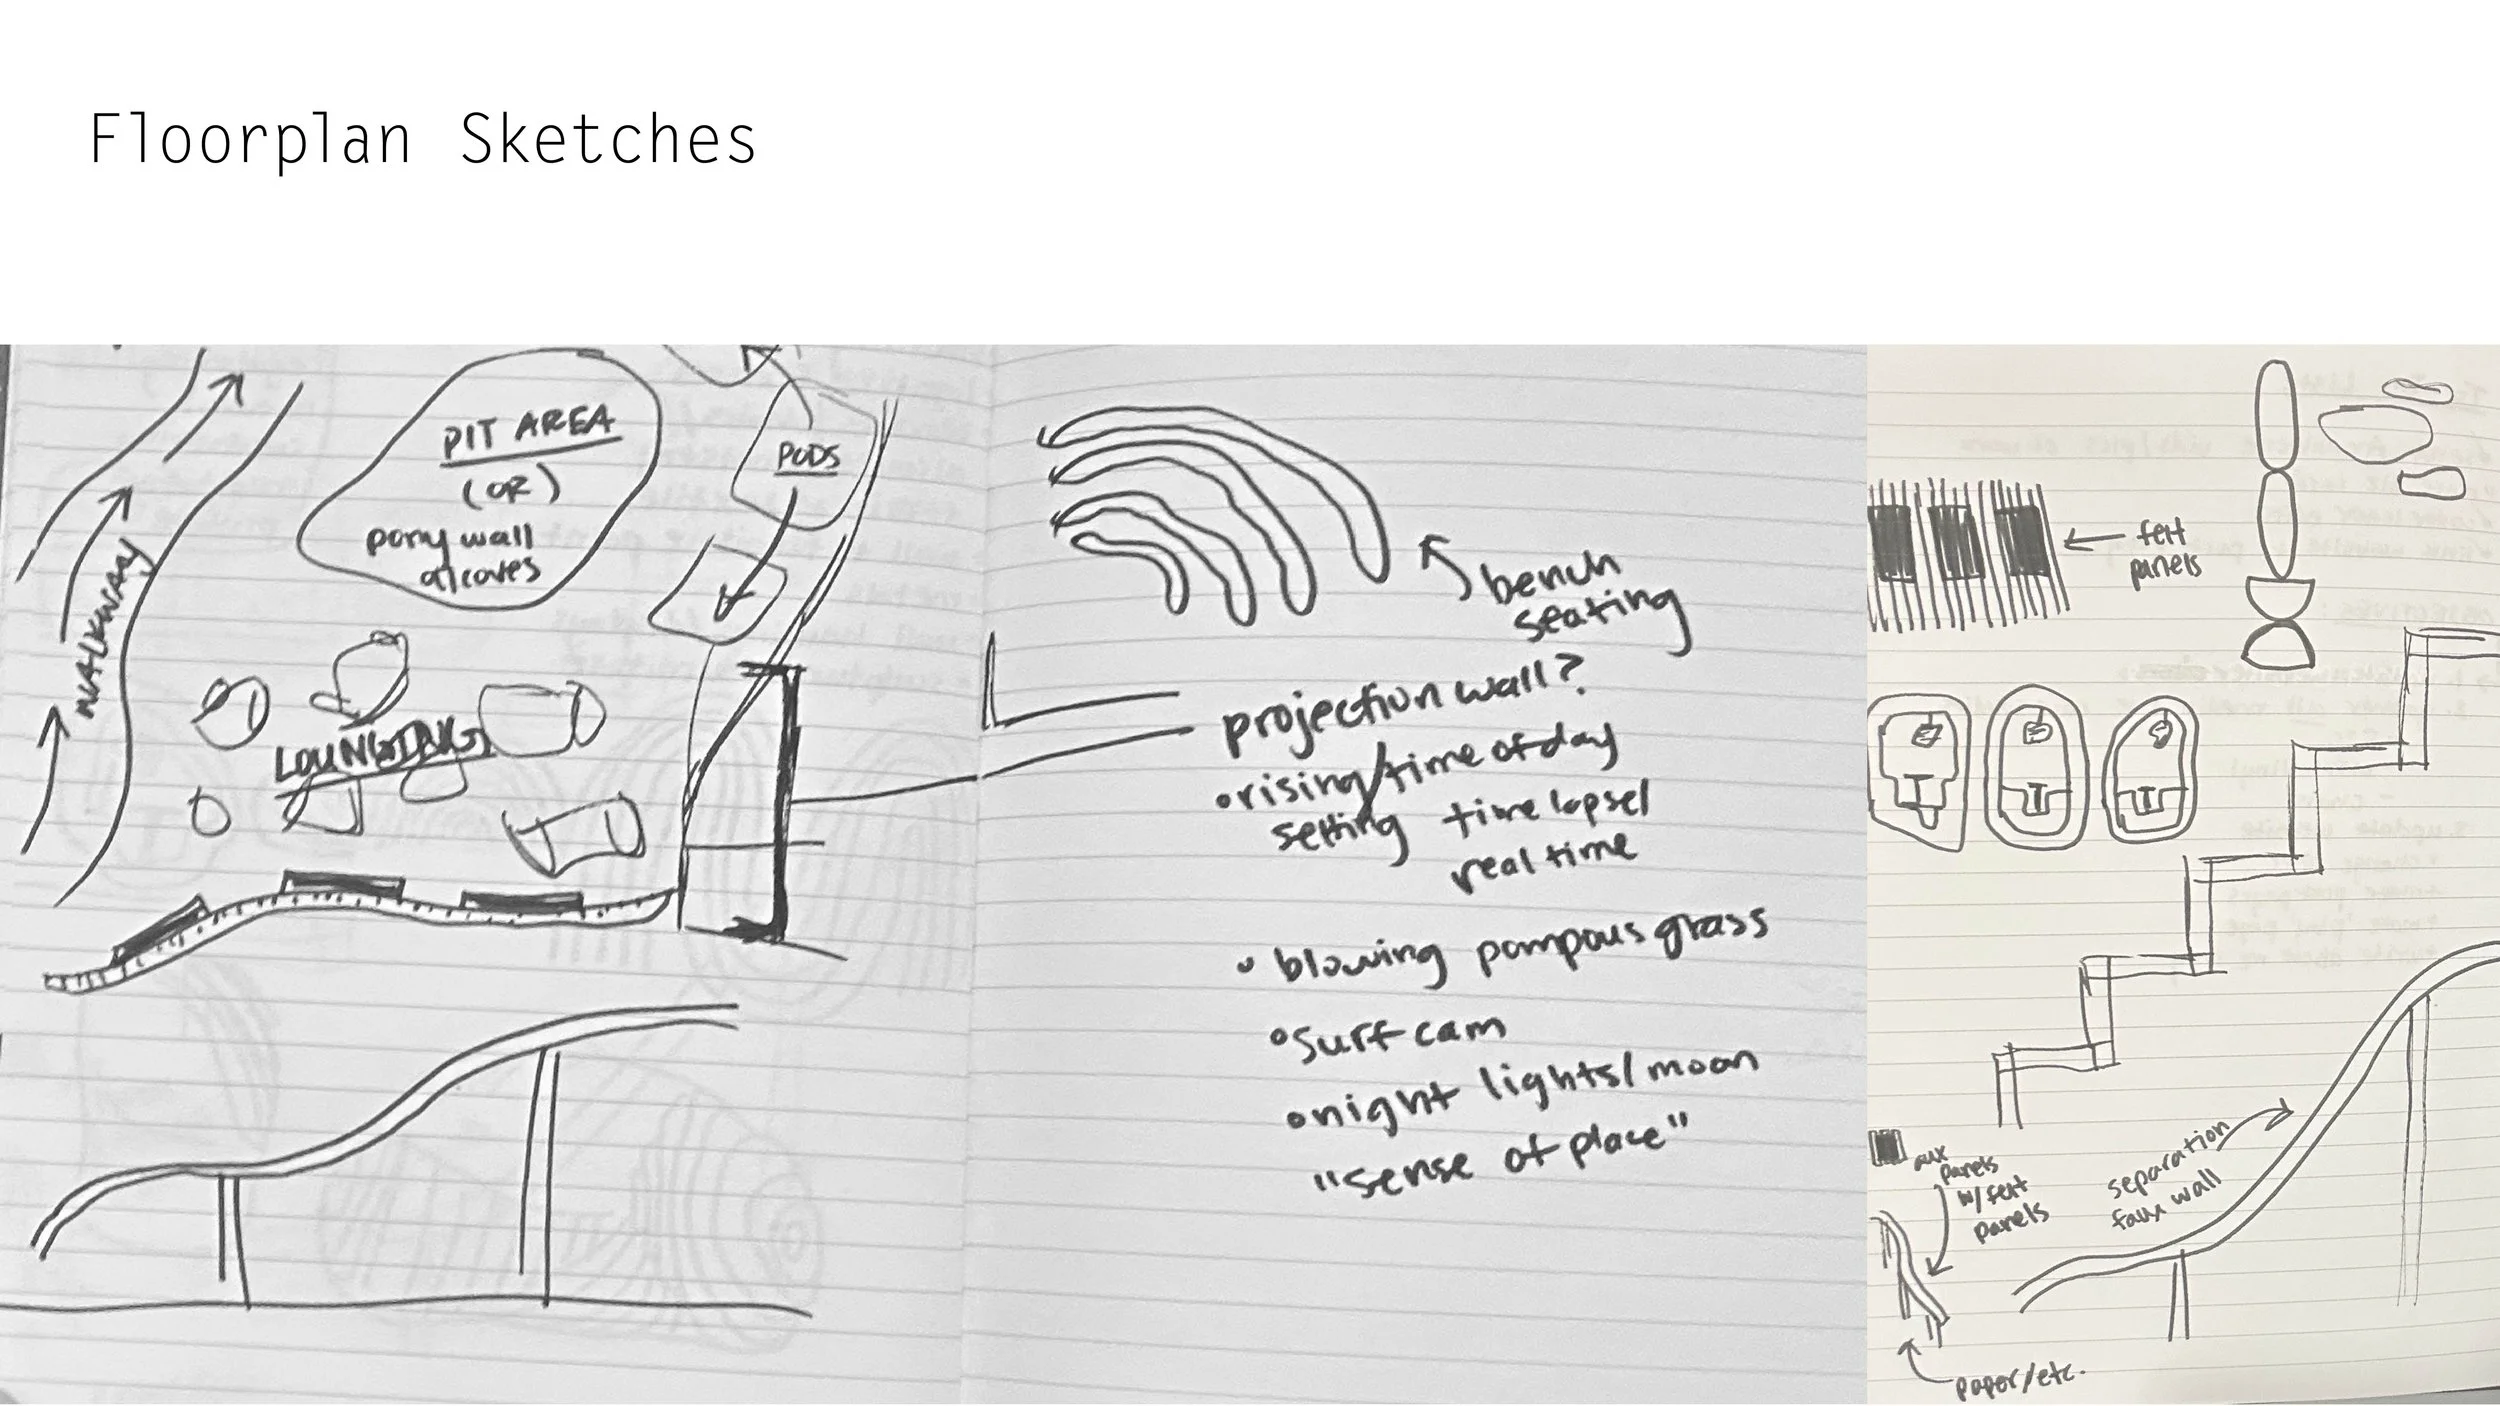 Floorplan Sketches
PIT AREA
(OR)
pony wall
alcoves
PODS
WALKWAY
LOUNGING
bench
seating
projection wall?
•rising/time of day
setting time lapse/
real time
• blowing pompous grass
•surf cam
•night lights/moon
"sense of place"
felt
panels
aux
panels
w/ felt
panels
separation
faux wall
paper/etc.